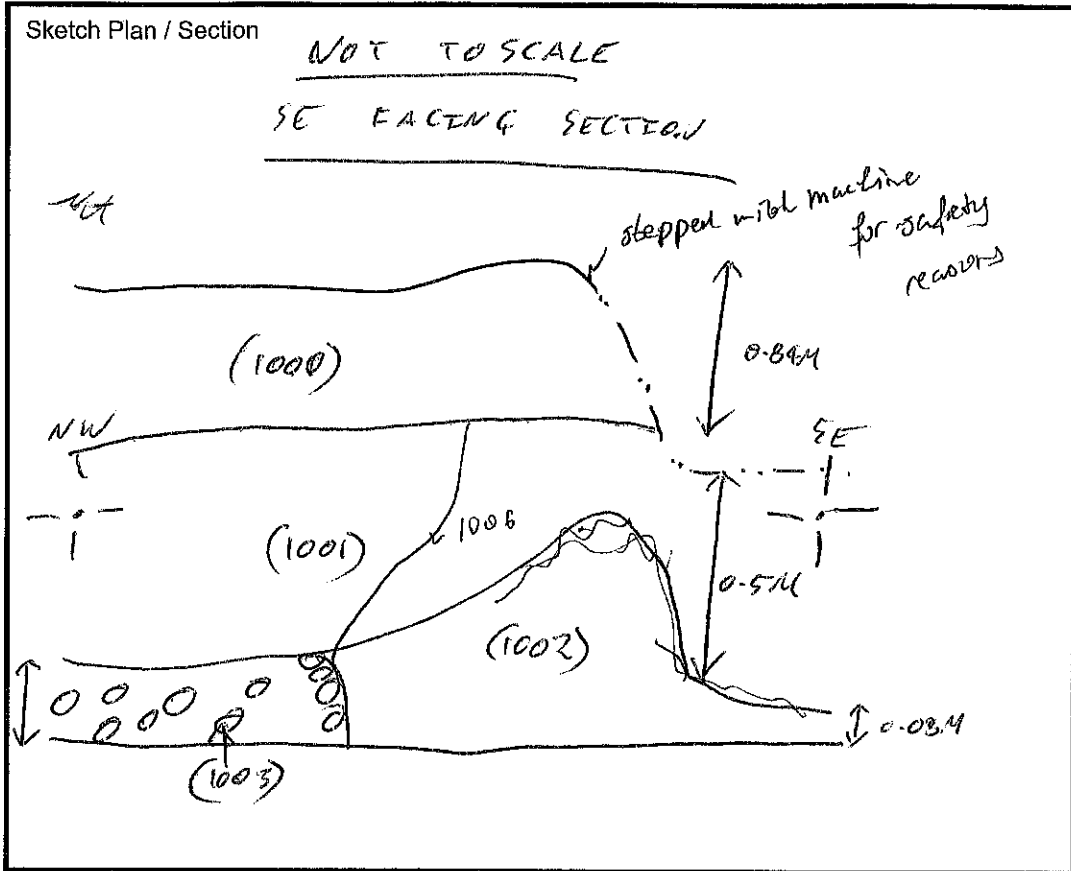 Sketch Plan / Section
NOT TO SCALE
SE FACING SECTION
stepped with machine
for safety
reasons
(1000)
0.84M
NW
SE
(1001)
1006
0.5M
(1002)
0.03M
(1003)